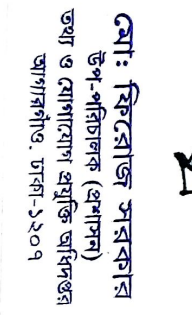 মোঃ ফিরোজ সরকার
উপ-পরিচালক (প্রশাসন)
তথ্য ও যোগাযোগ প্রযুক্তি অধিদপ্তর
আগারগাঁও, ঢাকা-১২০৭